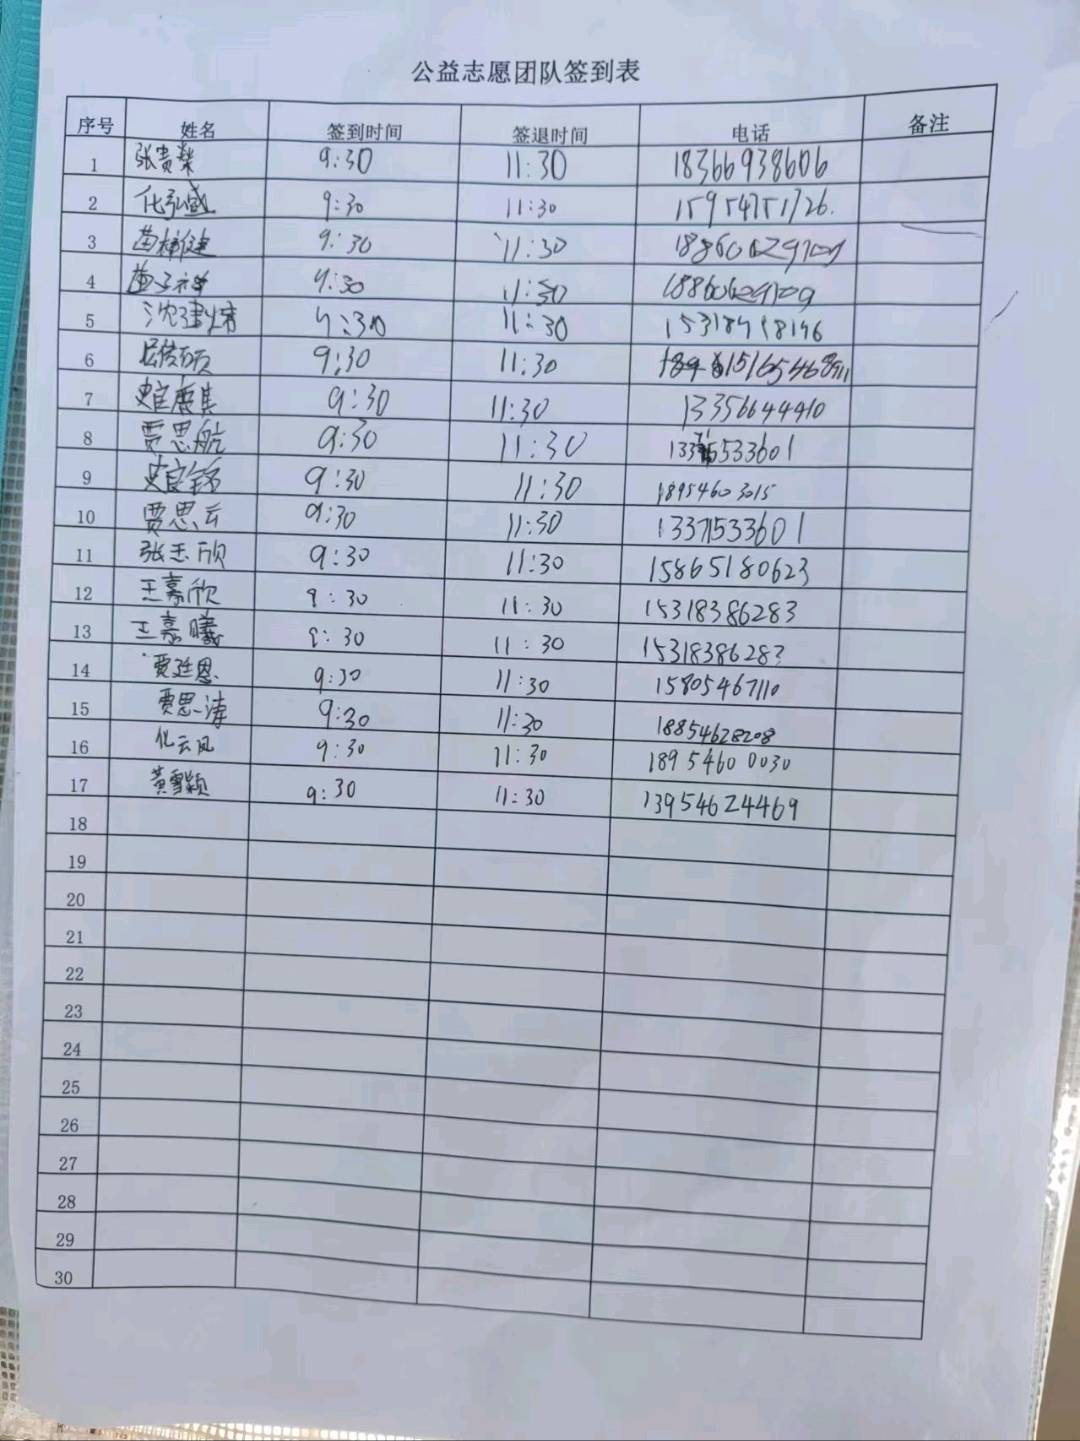 公益志愿团队签到表
序号 姓名 签到时间 签退时间 电话 备注
1 张贵荣 9:30 11:30 18366938606
2 化弘盛 9:30 11:30 15954751726.
3 9:30 11:30
4 9:30 11:30
5 9:30 11:30
6 9:30 11:30
7 9:30 11:30 13356644410
8 贾思航 9:30 11:30
9 9:30 11:30 18954603015
10 贾思云 9:30 11:30 13371533601
11 张玉欣 9:30 11:30 15865180623
12 王嘉欣 9:30 11:30 15318386283
13 王嘉曦 9:30 11:30 15318386283
14 贾延恩 9:30 11:30 15805467110
15 贾思涛 9:30 11:30 18854628208
16 化云风 9:30 11:30 18954600030
17 黄雪颖 9:30 11:30 13954624469
18
19
20
21
22
23
24
25
26
27
28
29
30